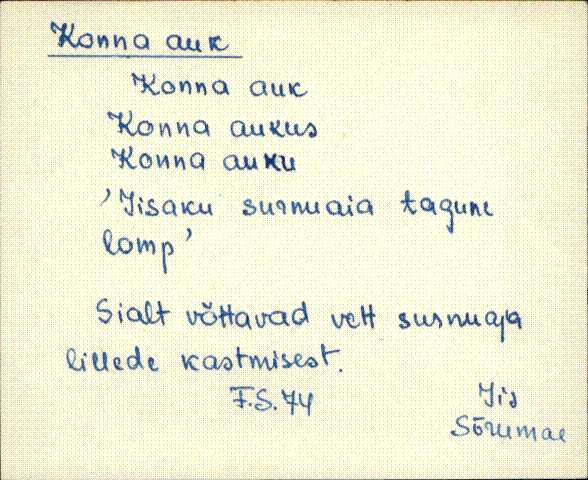 Konna auk
Konna auk
Konna aukus
Konna auku
'Iisaku surnuaia tagune
lomp'
Sialt võttavad vett surnuaja
lillede kastmisest.
F.S. 74
Iis
Sõrumäe